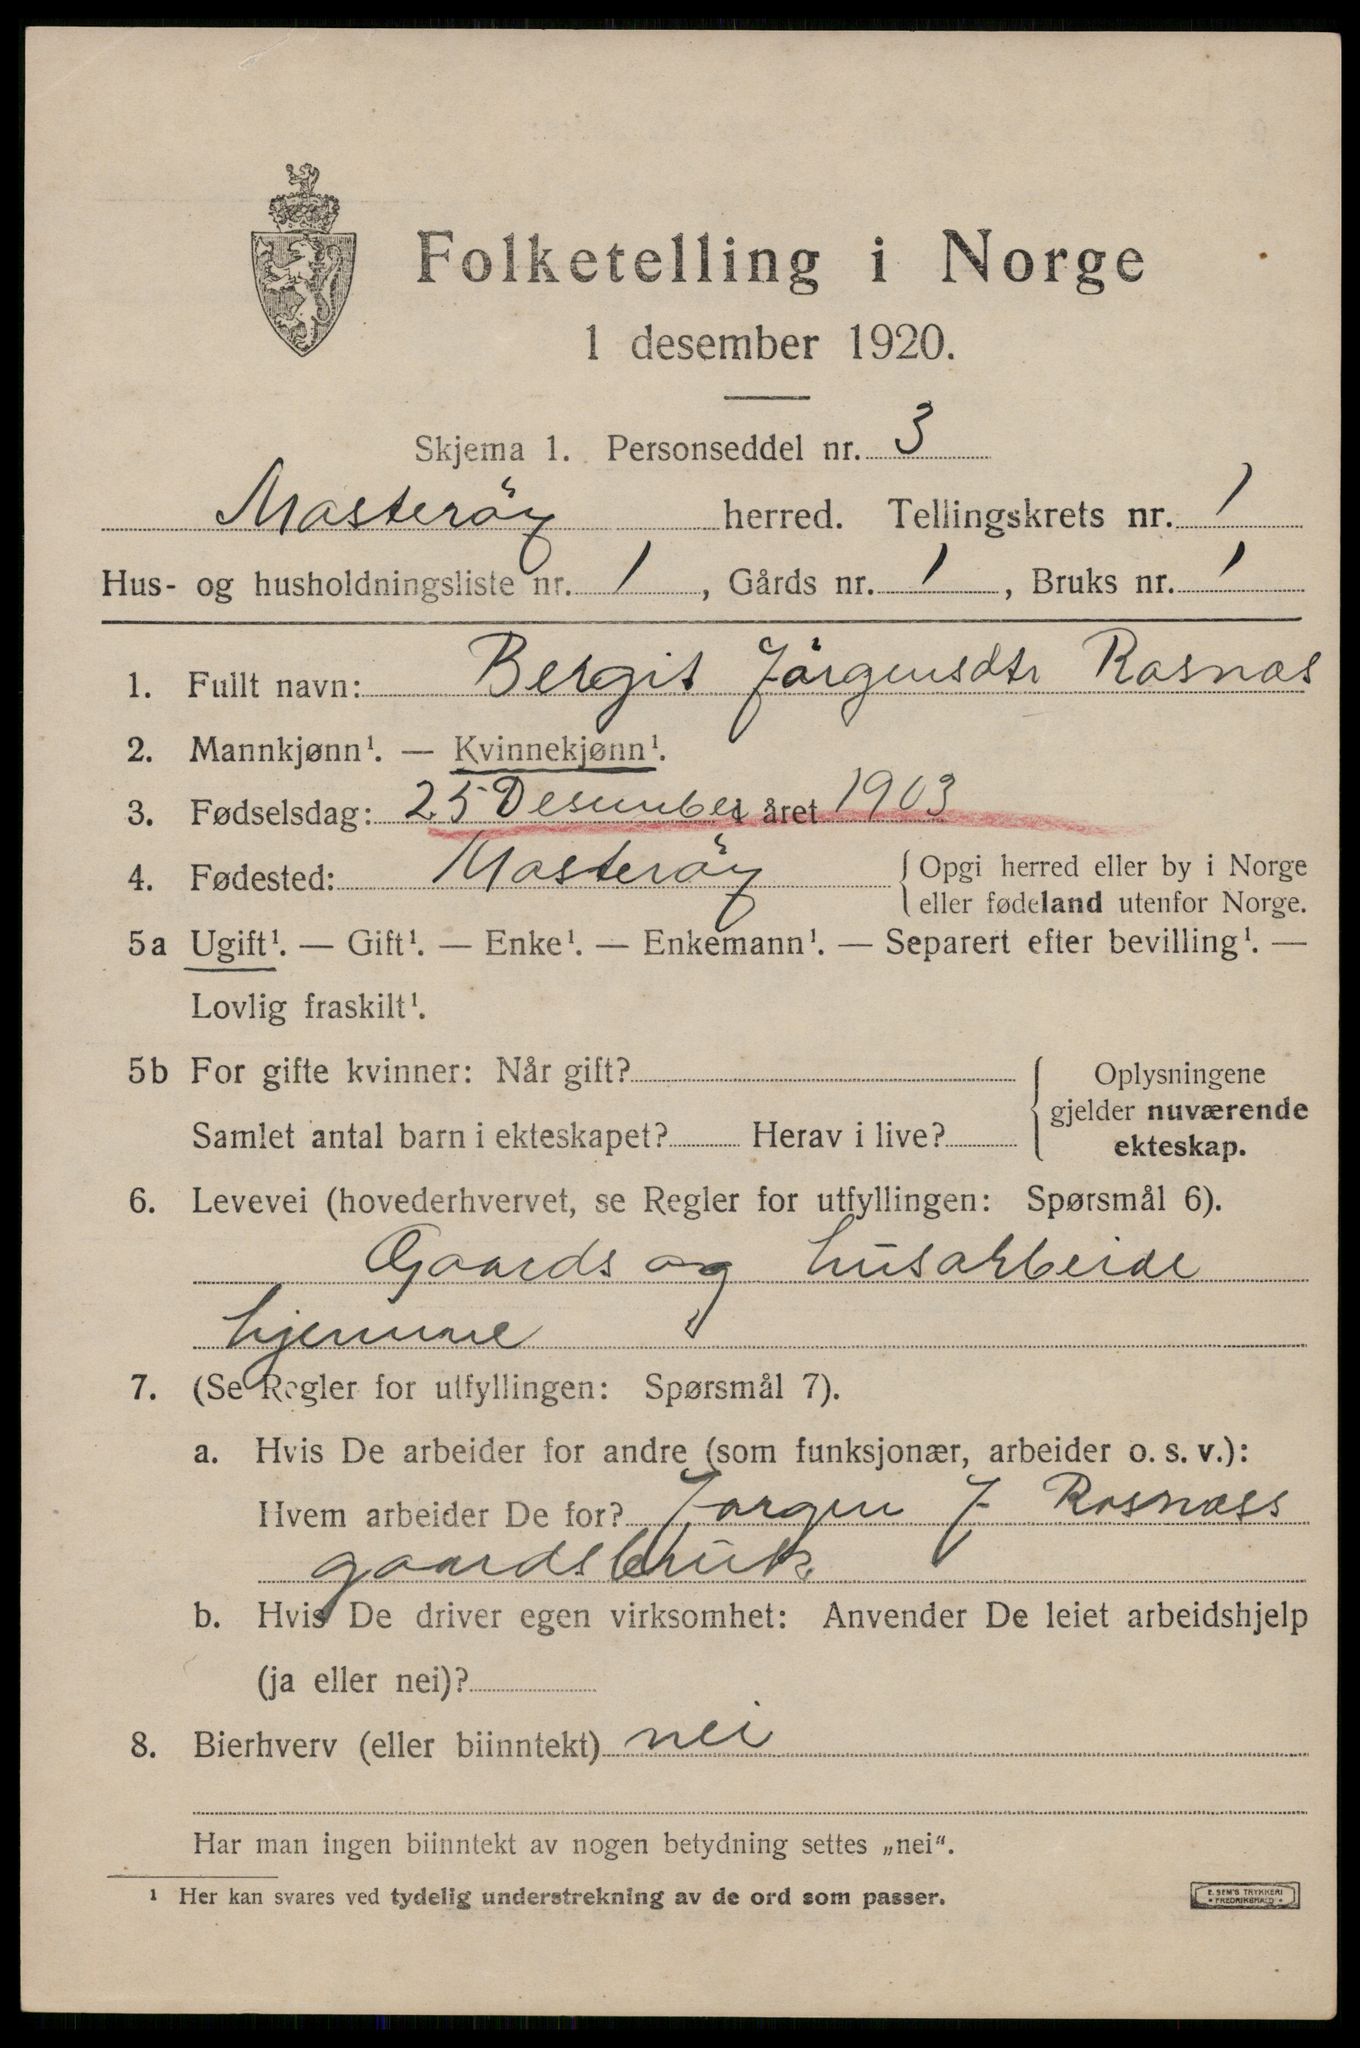 Folketelling i Norge
1 desember 1920.
Skjema 1. Personseddel nr. 3
Masterøy herred. Tellingskrets nr. 1
Hus- og husholdningsliste nr. 1, Gårds nr. 1, Bruks nr. 1
1. Fullt navn: Bergit Jørgensdtr Rasnas
2. Mannkjønn¹. — Kvinnekjønn¹.
3. Fødselsdag: 25 Desember året 1903
4. Fødested: Masterøy { Opgi herred eller by i Norge
eller fødeland utenfor Norge.
5a Ugift¹. — Gift¹. — Enke¹. — Enkemann¹. — Separert efter bevilling¹. —
Lovlig fraskilt¹.
5b For gifte kvinner: Når gift?
Samlet antal barn i ekteskapet? Herav i live?
Oplysningene
gjelder nuværende
ekteskap.
6. Levevei (hovederhvervet, se Regler for utfyllingen: Spørsmål 6).
Gaards og husarbeide
hjemme
7. (Se Regler for utfyllingen: Spørsmål 7).
a. Hvis De arbeider for andre (som funksjonær, arbeider o. s. v.):
Hvem arbeider De for? Jørgen J Rasnass
gaardsbruk
b. Hvis De driver egen virksomhet: Anvender De leiet arbeidshjelp
(ja eller nei)?
8. Bierhverv (eller biinntekt) nei
Har man ingen biinntekt av nogen betydning settes „nei“.
¹ Her kan svares ved tydelig understrekning av de ord som passer.
E. SEM'S TRYKKERI
FREDRIKSHALD